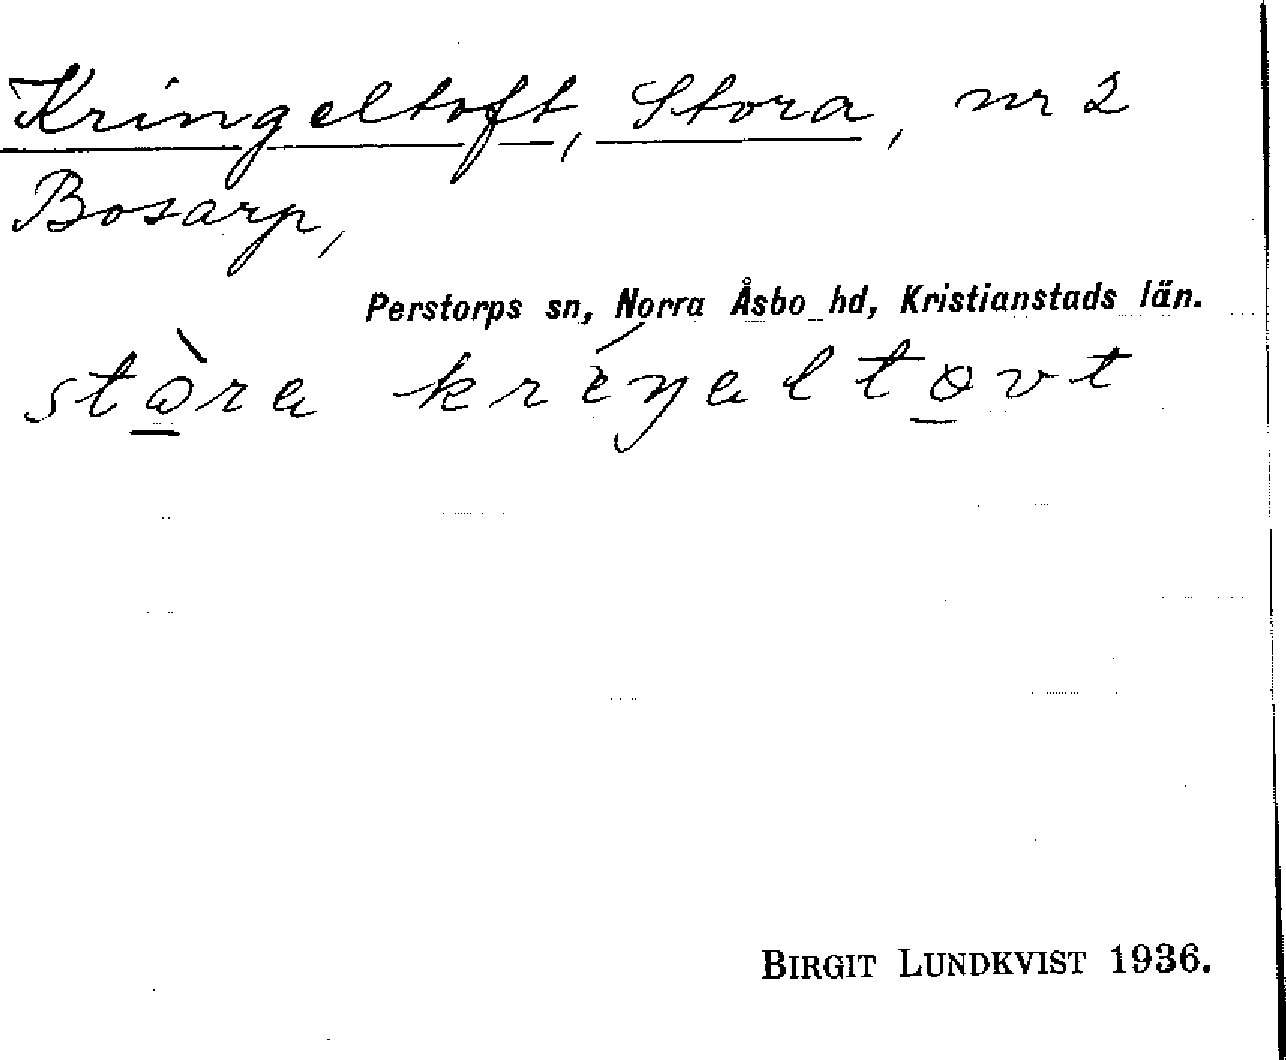 Kringeltoft, Stora, nr 2
Bosarp,
Perstorps sn, Norra Åsbo hd, Kristianstads län.
stò̠ra kríŋaltο̠vt
BIRGIT LUNDKVIST 1936.